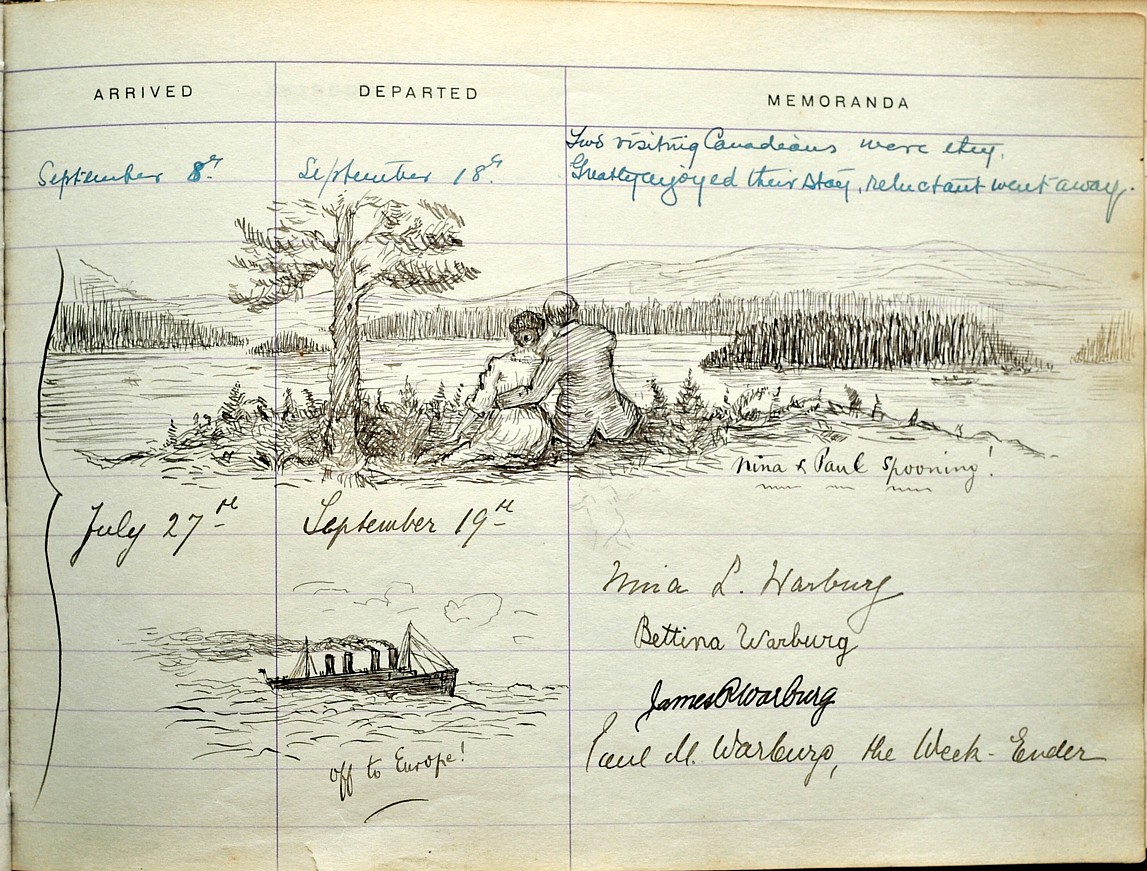 ARRIVED DEPARTED MEMORANDA
Two visiting Canadians were they,
September 8th September 18th Greatly enjoyed their stay, reluctant went away.
Nina & Paul spooning!
July 27th September 19th
Nina L. Warburg
Bettina Warburg
James P Warburg
Paul M. Warburg, the Week-Ender
off to Europe!